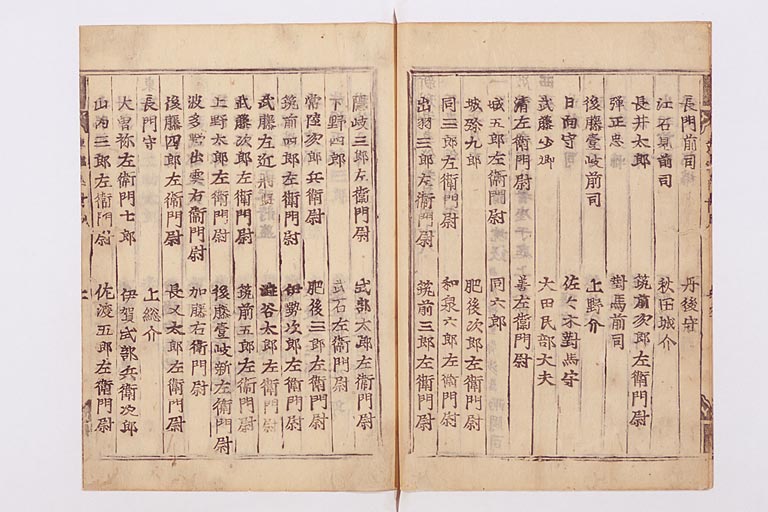 長門前司 丹後守
江石見前司 秋田城介
長井太郎 筑前次郎左衛門尉
弾正忠 對馬前司
後藤壹岐前司 上野介
日向守 佐々木對馬守
武藤少卿 大田民部大夫
清左衛門尉 善左衛門尉
城五郎左衛門尉 同六郎
城弥九郎 肥後次郎左衛門尉
同三郎左衛門尉 和泉六郎左衛門尉
出羽三郎左衛門尉 筑前三郎左衛門尉
隠岐三郎左衛門尉 式部太郎左衛門尉
下野四郎 武石左衛門尉
常陸次郎兵衛尉 肥後三郎左衛門尉
筑前四郎左衛門尉 伊勢次郎左衛門尉
武藤左近将監 澁谷太郎左衛門尉
武藤次郎左衛門尉 筑前五郎左衛門尉
上野太郎左衛門尉 後藤壹岐新左衛門尉
波多野出雲右衛門尉 加藤右衛門尉
後藤四郎左衛門尉 長又太郎左衛門尉
長門守 上総介
大曽祢左衛門七郎 伊賀式部兵衛次郎
山内三郎左衛門尉 佐渡五郎左衛門尉